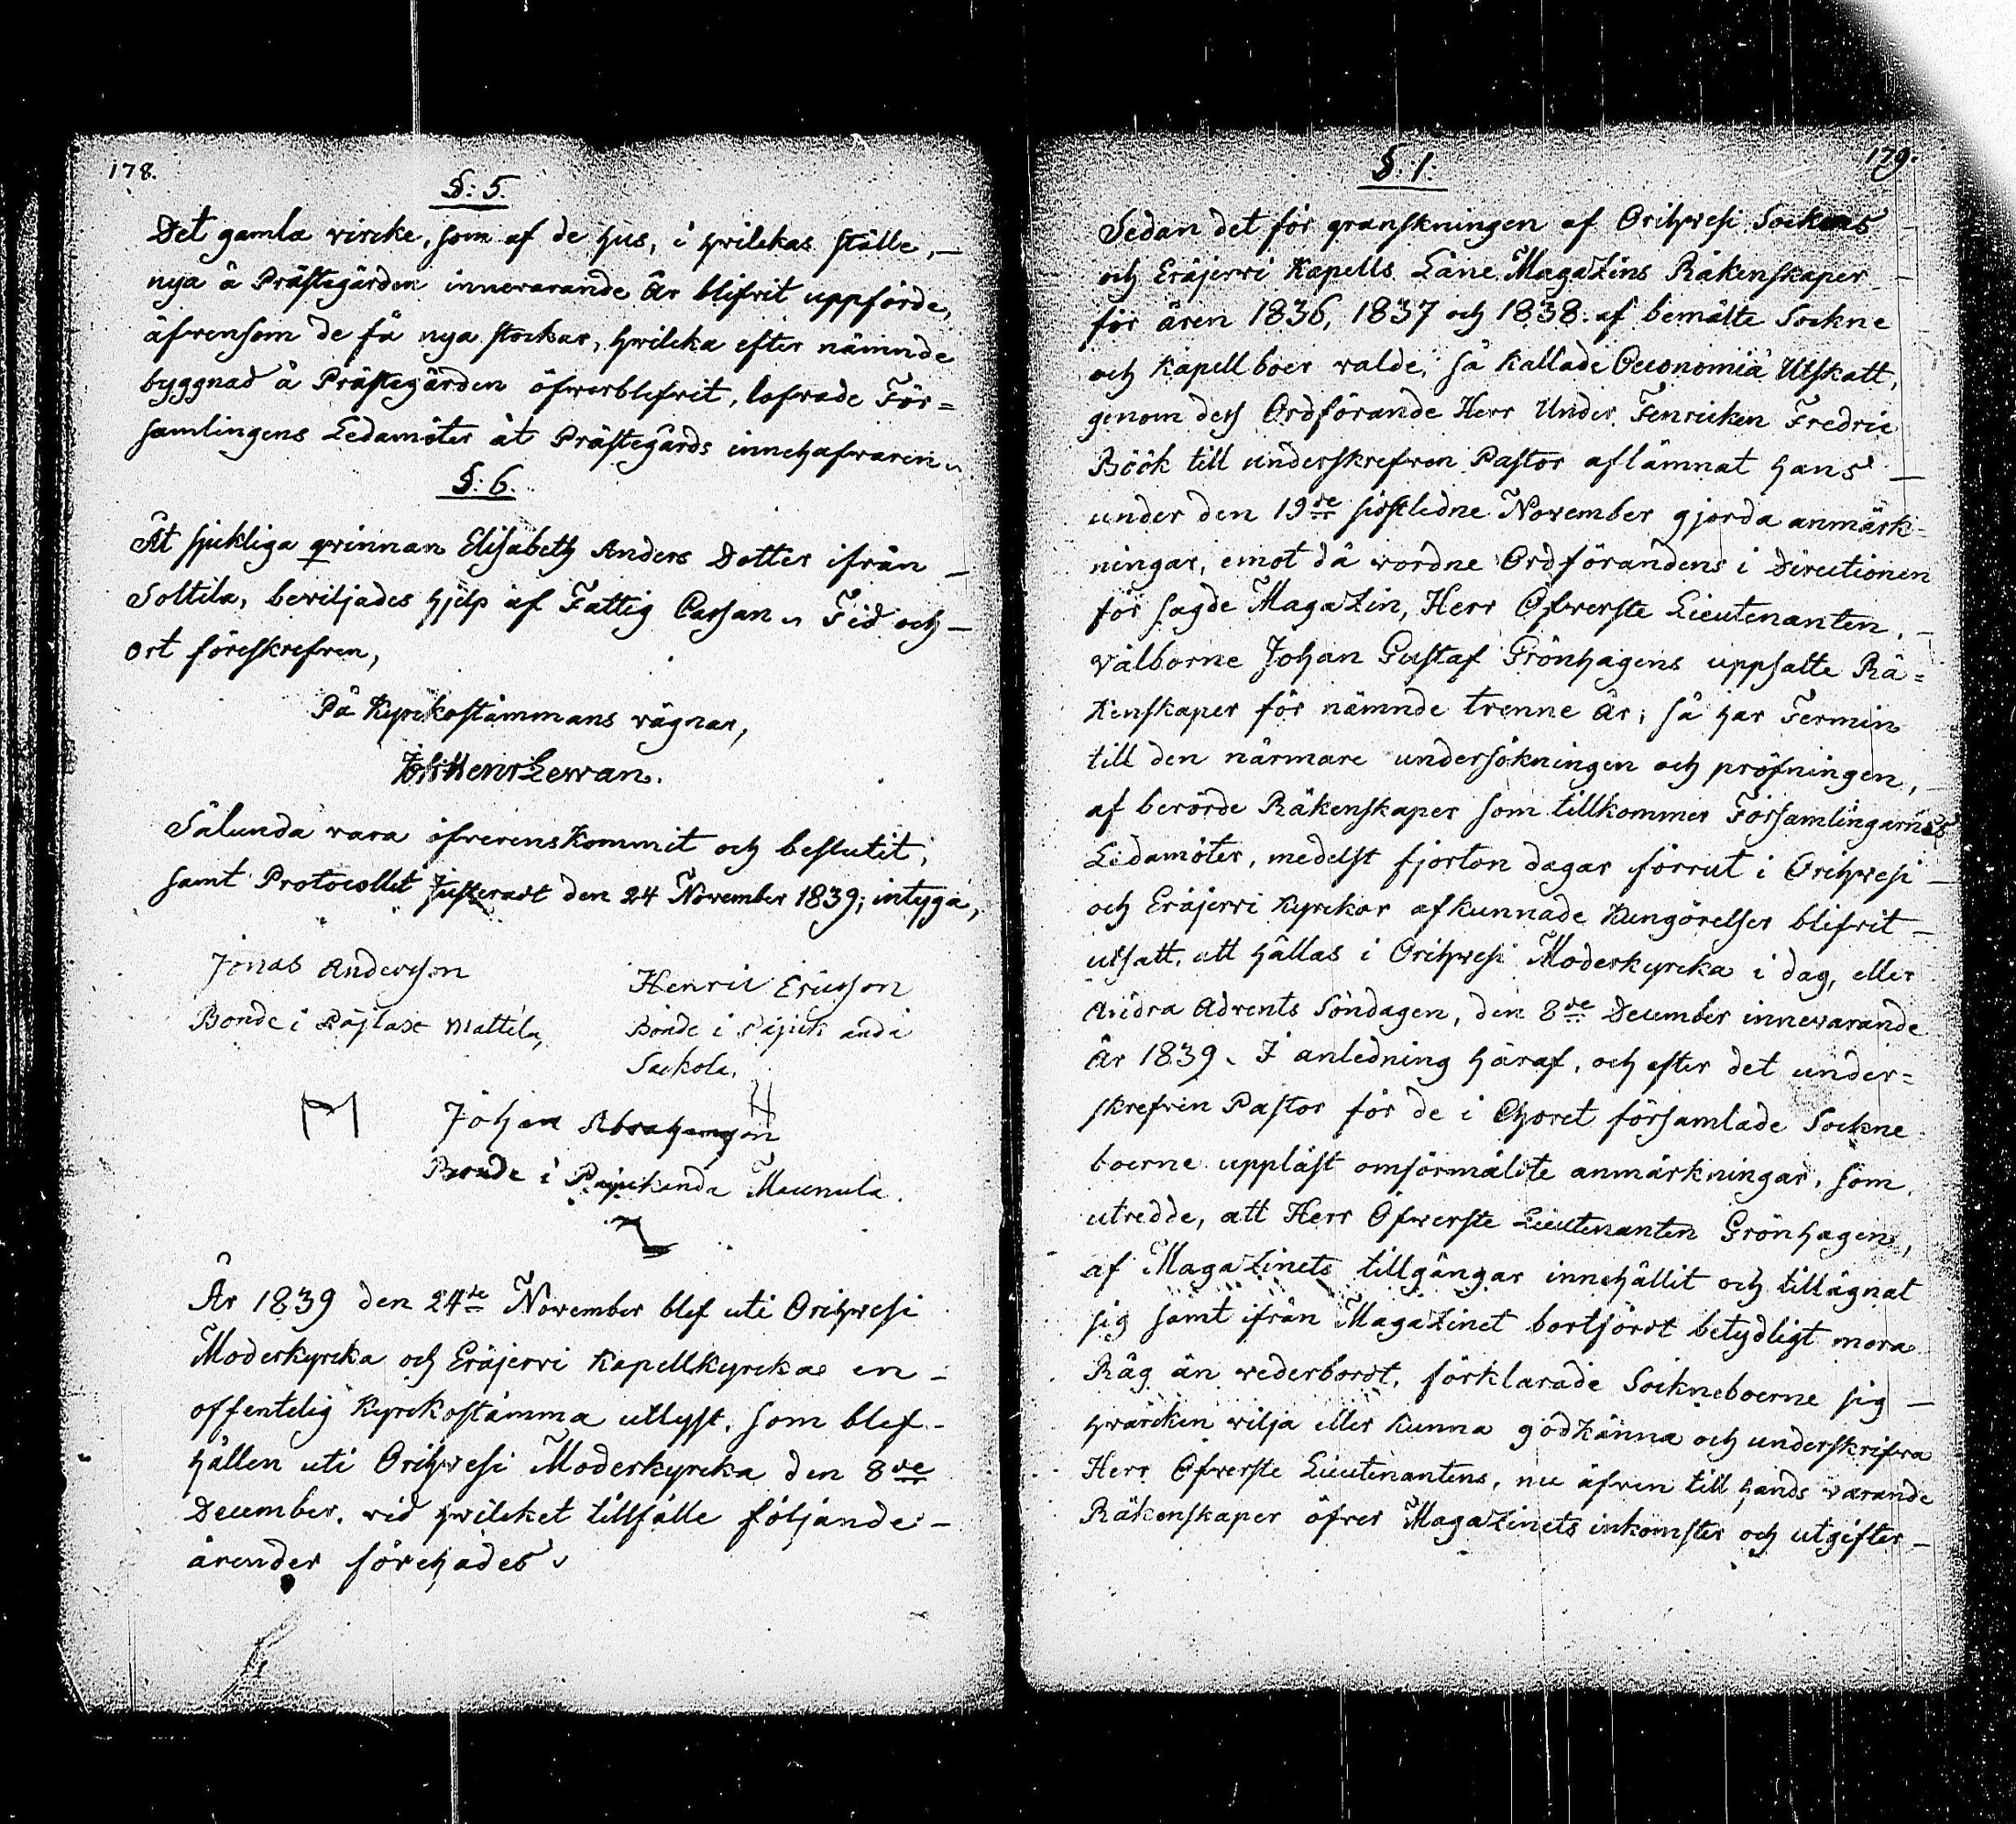 178.
§: 5.
Det gamla vircke, som af de hus, i hvilckas ställe, —
nya å Prästegården innevarande år blifvit uppförde,
äfvensom de få nya stockar, hvilcka efter nämnde
byggnad å Prästegården öfverblefvit, lofvade För=
samlingens Ledamöter åt Prästegårds innehafvaren.
§: 6.
Åt sjukliga qvinnan Elisabeth Anders Dotter ifrån —
Soltila, beviljades hjelp af Fattig Cassan. Tid och —
ort föreskrefven,
På Kyrckostämmans vägnar,
Joh: Henr Levan.
Sålunda vara öfverenskommit och beslutit,
samt Protocollet Justeradt den 24 November 1839; intyga,
Jonas Andersson
Bonde i Päjlax Mattila,
Henric Ericsson
Bonde i Päjick anda
Sackola.
Johan Abrahamsson
Bonde i Päjickanda Maunula.
År 1839 den 24de November blef uti Orihvesi
Moderkyrcka och Eräjervi Kapellkyrcka en —
offentelig Kyrckostämma utlyst, som blef —
hållen uti Orihvesi Moderkyrcka den 8de
December, vid hvilcket tillfälle följande —
ärender förehades.
179.
§: 1:
Sedan det för granskningen af Orihvesi Sockens
och Eräjervi Kapells Låne Magazins Räkenskaper
för åren 1836, 1837 och 1838. af bemälte Sockne
och Kapellboer valde, så kallade Oeconomia Utskatt,
genom dess Ordförande Herr Under Fenricken Fredric
Böök till underskrefven Pastor aflämnat hans —
under den 19de sistledne November gjorda anmärk=
ningar, emot då vordne Ordförandens i Directionen
för sagde Magazin, Herr Öfverste Lieutenanten, —
välborne Johan Gustaf Grönhagens uppsatte Rä=
kenskaper för nämnde trenne år; så har Termin
till den närmare undersökningen och pröfningen,
af berörde Räkenskaper som tillkommer Församlingarnes
Ledamöter, medelst fjorton dagar förrut i Orihvesi —
och Eräjervi Kyrckor afkunnade Kungörelser blifvit —
utsatt, att hållas i Orihvesi Moderkyrcka i dag, eller
Andra Advents Söndagen, den 8de December innevarande
År 1839. I anledning häraf, och efter det under=
skrefven Pastor för de i Choret församlade Sockne
boerne uppläst omförmälte anmärkningar, som
utredde, att Herr Öfverste Lieutenanten Grönhagen,
af Magazinets tillgångar innehållit och tillägnat
sig samt ifrån Magazinet bortfördt betydligt mera
Råg än vederbordt, förklarade Sockneboerne sig —
hvarcken vilja eller kunna godkänna och underskrifva
Herr Öfverste Lieutenantens, nu äfven till hands varande
Räkenskaper öfver Magazinets inkomster och utgifter —